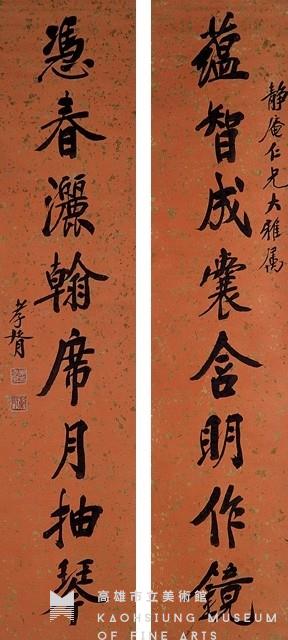 靜庵仁兄大雅屬
蘊智成囊含明作鏡
憑春灑翰席月抽琴
孝胥
高雄市立美術館
KAOHSIUNG MUSEUM
OF FINE ARTS